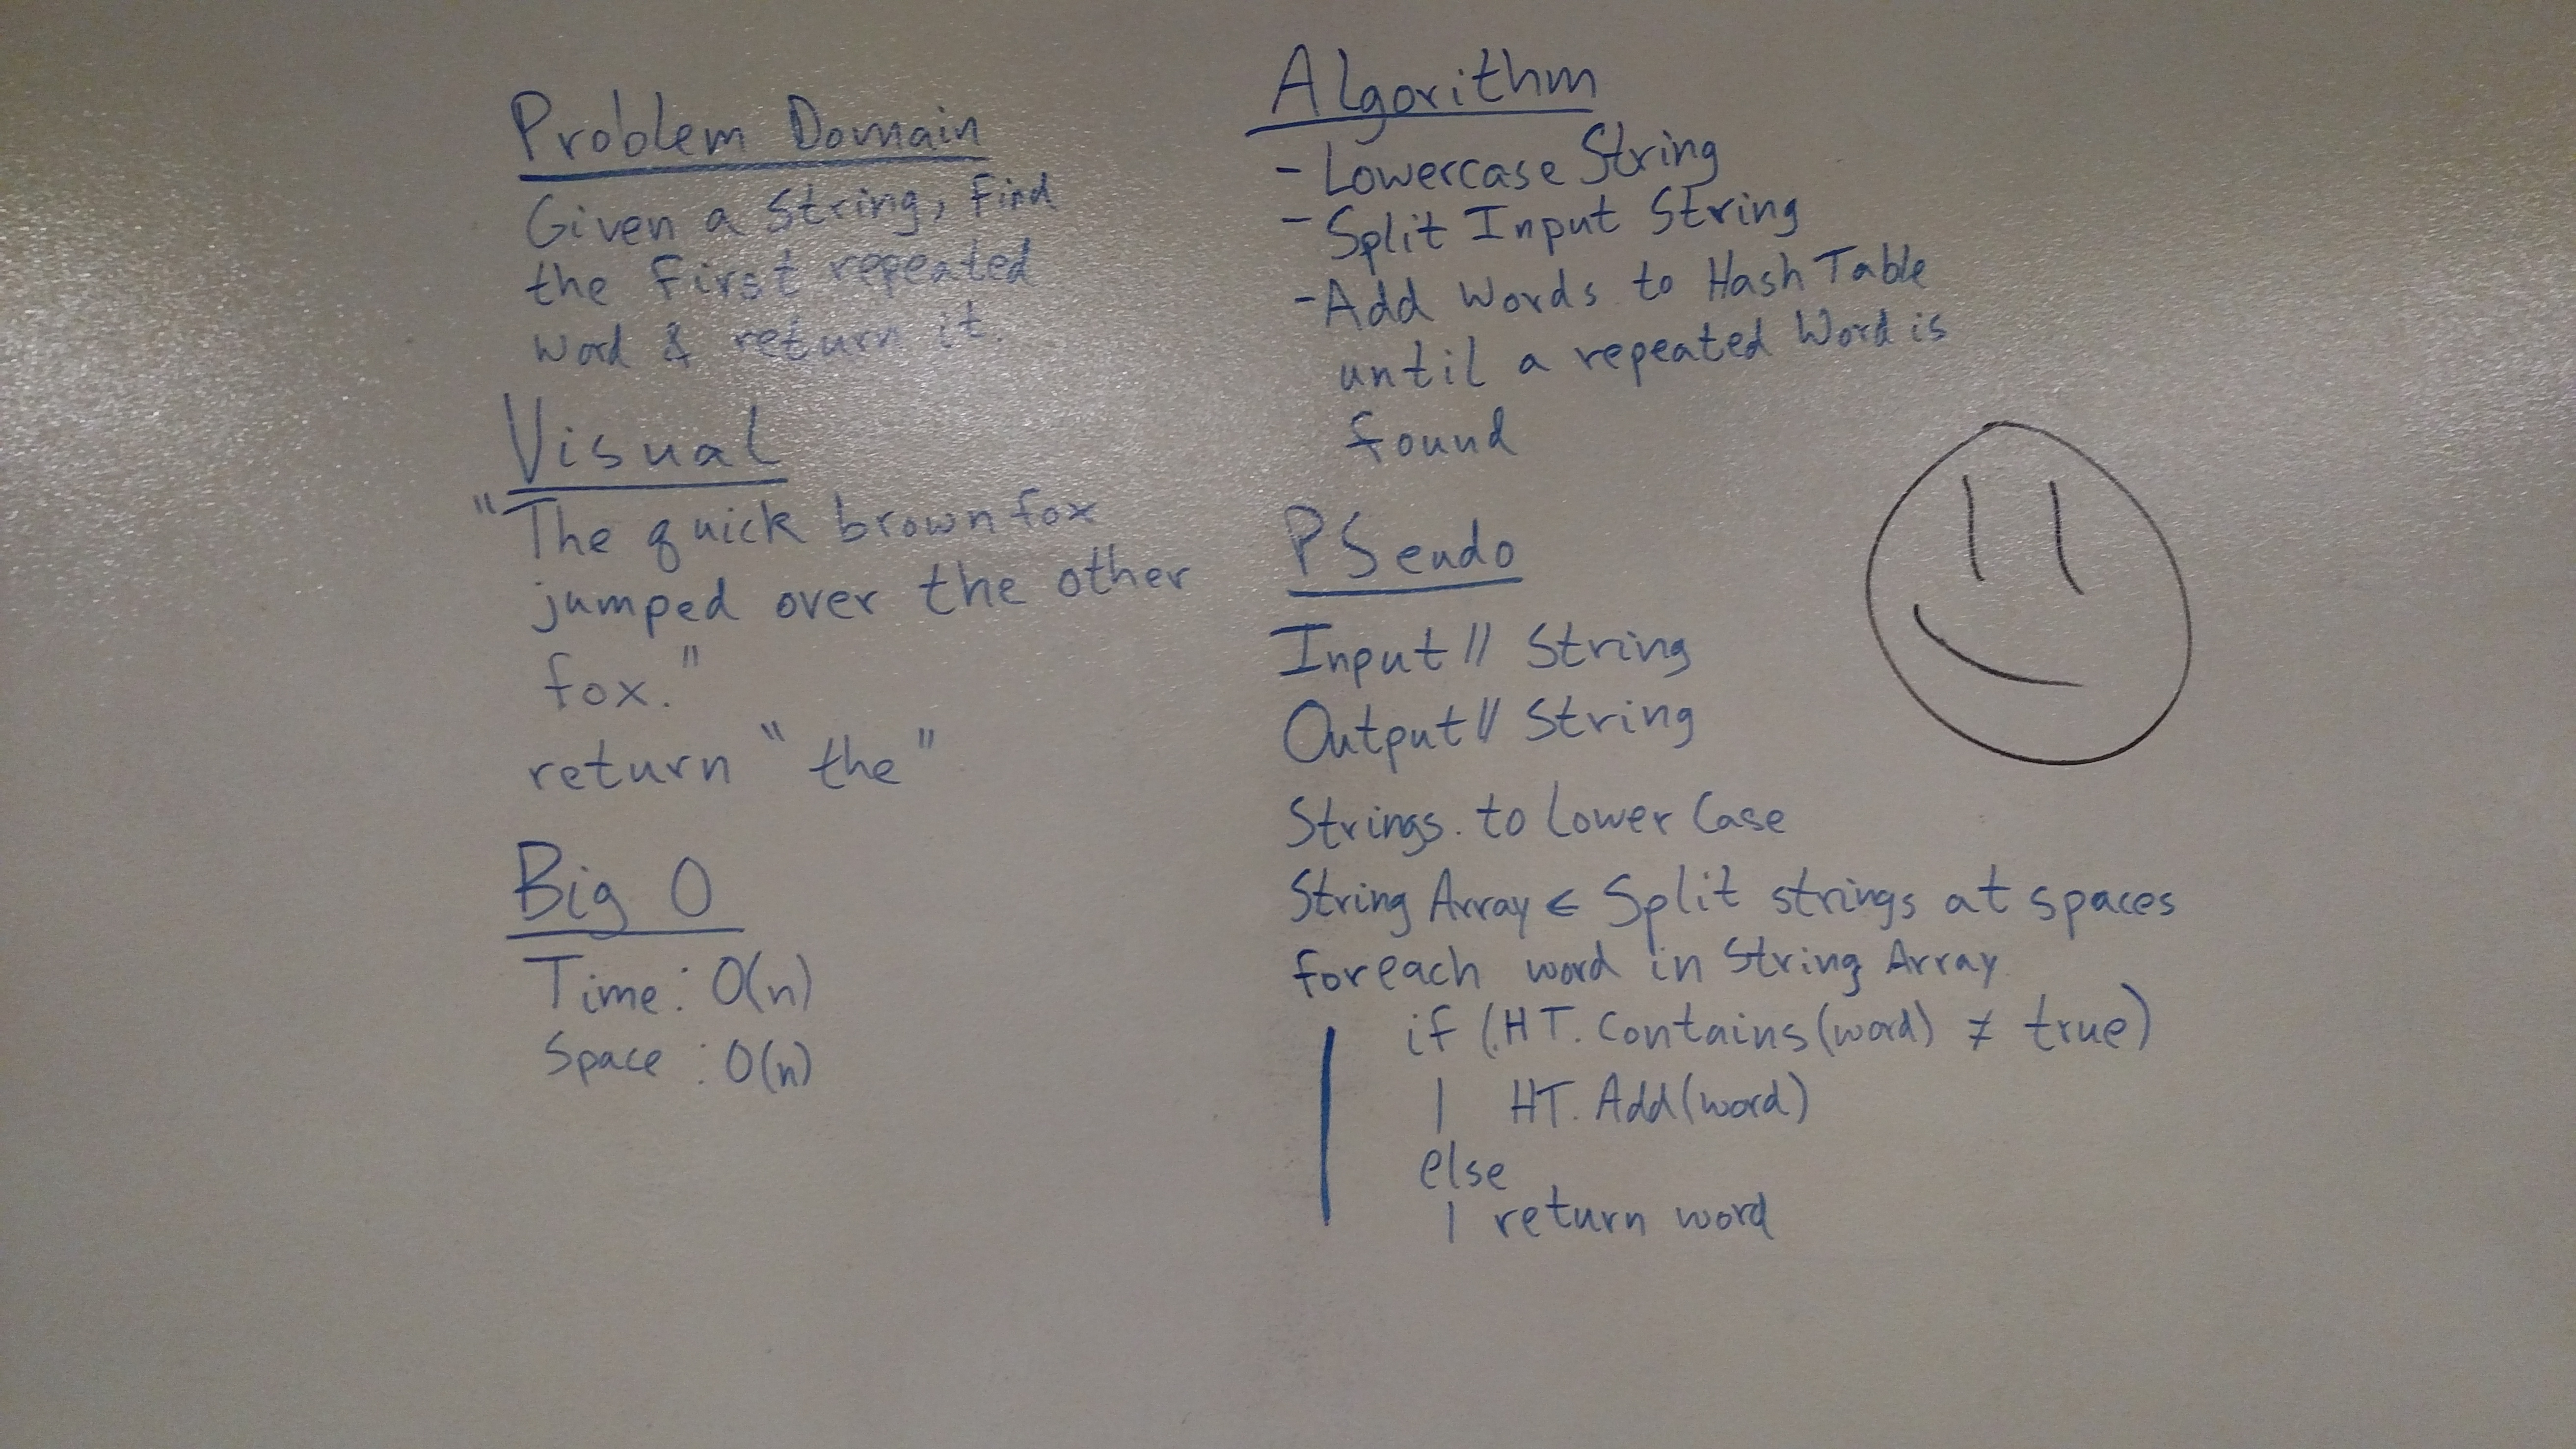 Problem Domain
Given a String, Find
the First repeated
Word & return it.
Visual
"The quick brown fox
jumped over the other
fox."
return "the"
Big O
Time: O(n)
Space: O(n)
Algorithm
- Lowercase String
- Split Input String
- Add Words to Hash Table
until a repeated Word is
found
PSeudo
Input // String
Output // String
Strings. to Lower Case
String Array ← Split strings at spaces
foreach word in String Array
if (HT. Contains(word) ≠ true)
HT. Add(word)
else
return word